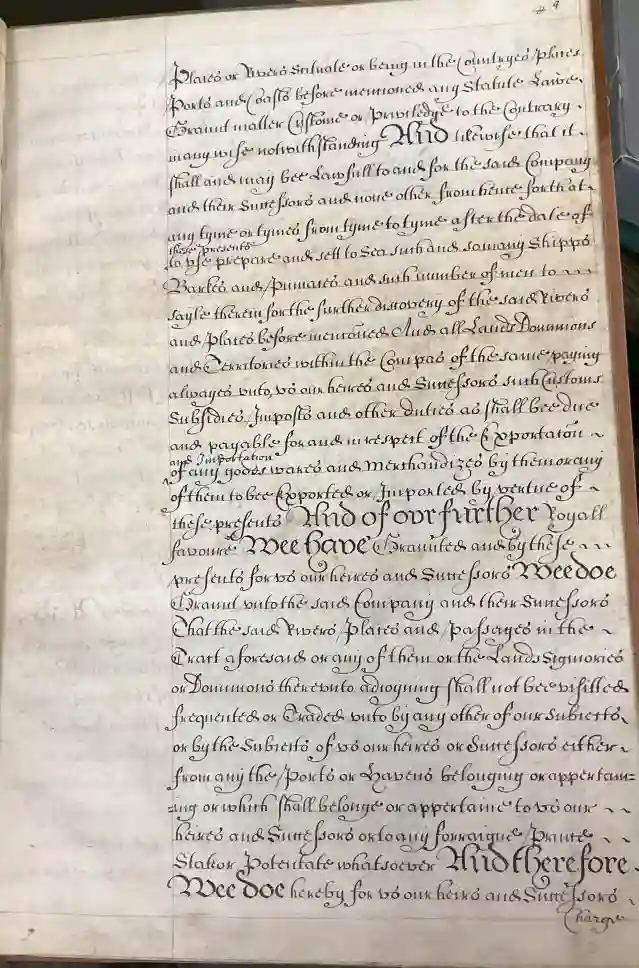 9
Places or Rivers Scituate or being in the Countryes Places
Ports and Coasts before mentioned any Statute Lawe
Graunt matter Custome or Priviledge to the Contrary
in any wise notwithstanding And likewise that it
shall and may bee Lawfull to and for the said Company
and their Successors and none other from hence forth at
any tyme or tymes from tyme to tyme after the date of
these presents
to use prepare and sett to Sea such and so many Shipps
Barkes and Pinnaces and such number of men to
sayle therein for the further discovery of the said Rivers
and Places before mencōned And all Lands Dominions
and Territories within the Compas of the same paying
alwayes vnto vs our heires and Successors such Customs
Subsidies Imposts and other duties as shall bee due
and payable for and in respect of the Exportacōn
and Importation
of any goods wares and Merchandizes by them or any
of them to bee Exported or Imported by vertue of
these presents And of our further Royall
favoure Wee have Graunted and by these
presents for vs our heires and Successors Wee doe
Graunt vnto the said Company and their Successors
That the said Rivers Places and Passages in the
Tract aforesaid or any of them or the Lands Signories
or Dominions therevnto adioyning shall not bee visitted
frequented or Traded vnto by any other of our Subiects
or by the Subiects of vs our heires or Successors either
from any the Ports or Havens belonging or appertain=
=ing or which shall belonge or appertaine to vs our
heires and Successors or to any forraigne Prince
State or Potentate whatsoever And therefore
Wee doe hereby for vs our heirs and Successors
Charge